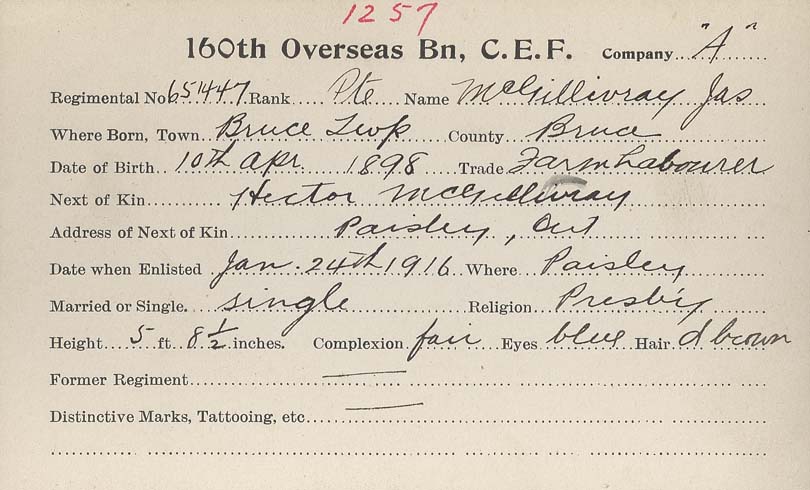 1257
160th Overseas Bn, C.E.F. Company "A"
Regimental No 651447 Rank Pte Name McGillivray Jas
Where Born, Town Bruce Twp County Bruce
Date of Birth 10th apr. 1898 Trade Farm Labourer
Next of Kin Hector McGillivray
Address of Next of Kin Paisley, Ont
Date when Enlisted Jan. 24th 1916 Where Paisley
Married or Single. single Religion Presby
Height 5 ft. 8 1/2 inches. Complexion fair Eyes blue Hair d brown
Former Regiment —
Distinctive Marks, Tattooing, etc —